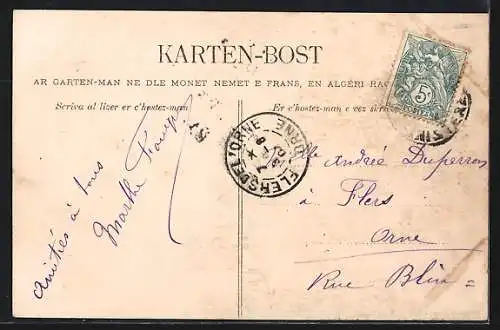 KARTEN-BOST
AR GARTEN-MAN NE DLE MONET NEMET E FRANS, EN ALGÉRI HAG
Scriva al lizer er c'hostez-man
Er c'hostez-man e vez skriv
FLERS DE L'ORNE
ORNE
5
Amitiés à tous
Marthe
Mlle Andrée Duperron
à Flers
Orne
Rue Blin